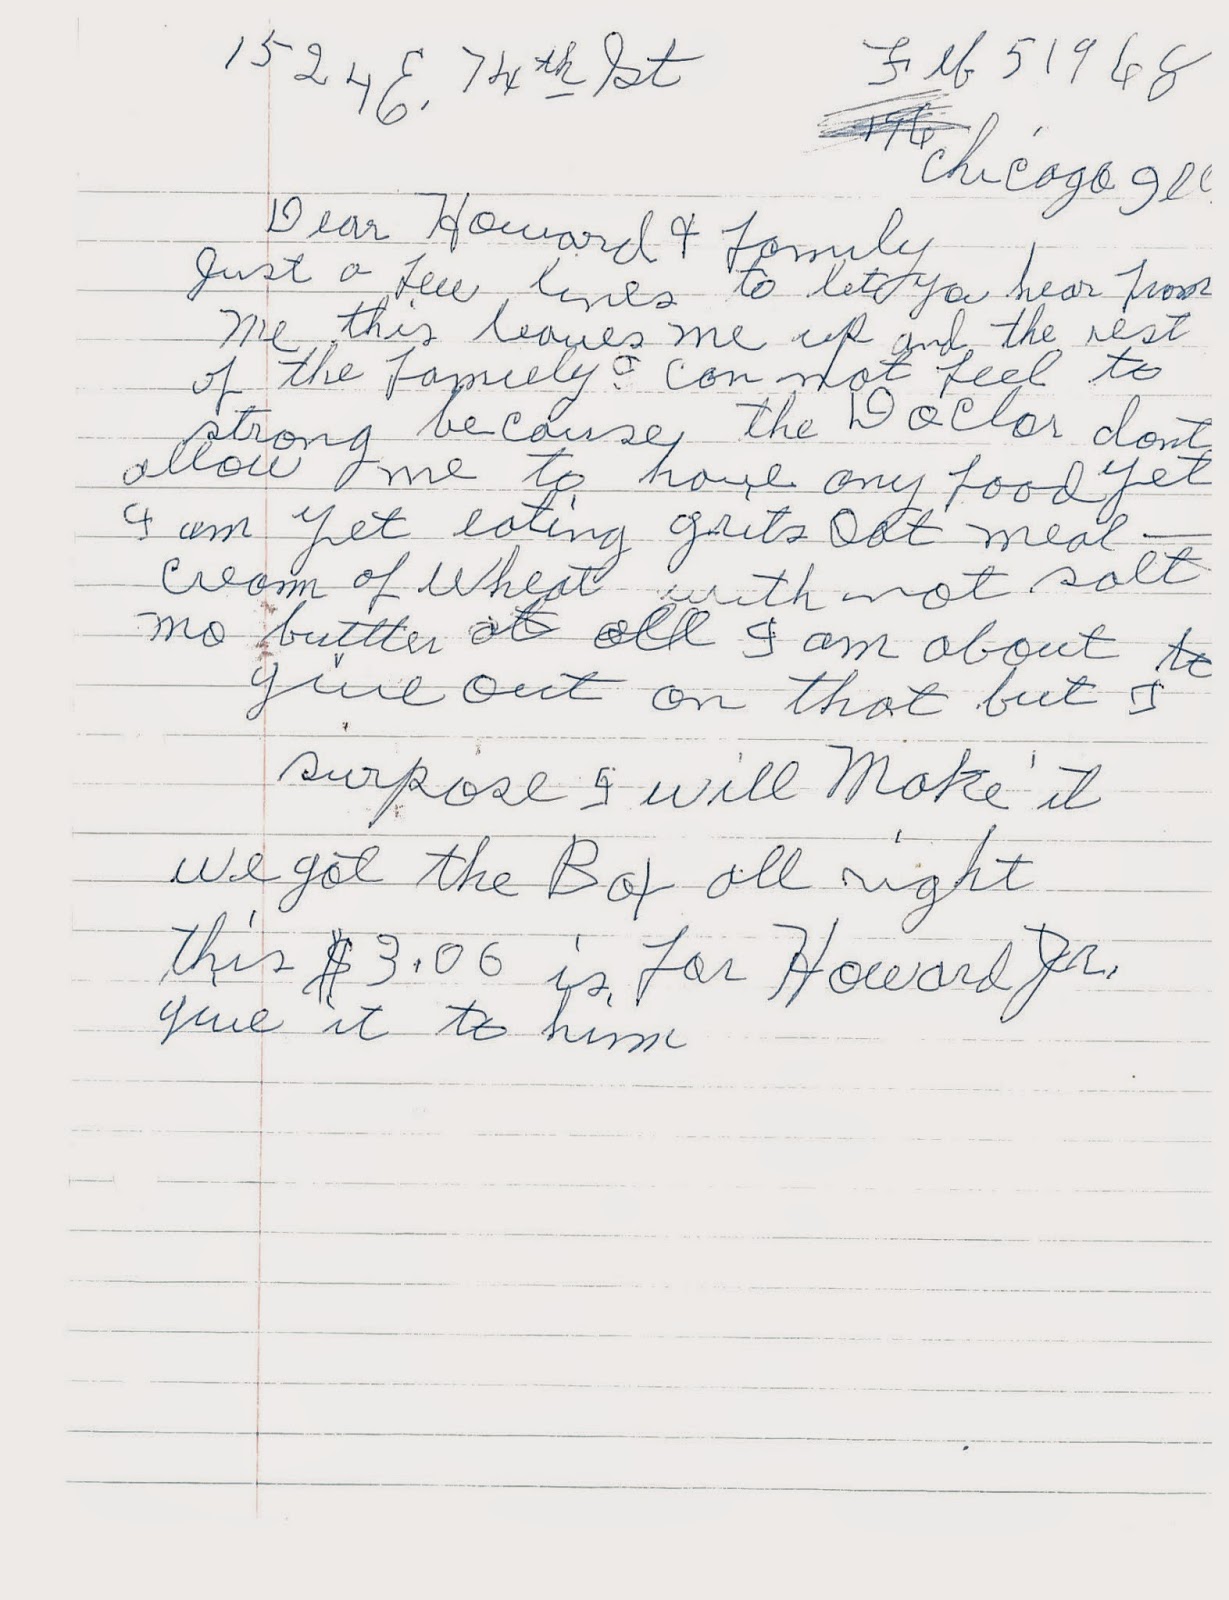 1524 E. 74th St Feb 5 1968
196
Chicago Ill
Dear Howard & Family
Just a few lines to let ya hear from
me this leaves me up and the rest
of the Family I can not feel to
strong because the Doctor dont
allow me to have any food yet
I am yet eating grits Oat meal —
Cream of Wheat with not salt
no buttter at all I am about to
give out on that but I
surpose I will Make it
we got the Box all right
this $3.00 is for Howard Jr.
give it to him